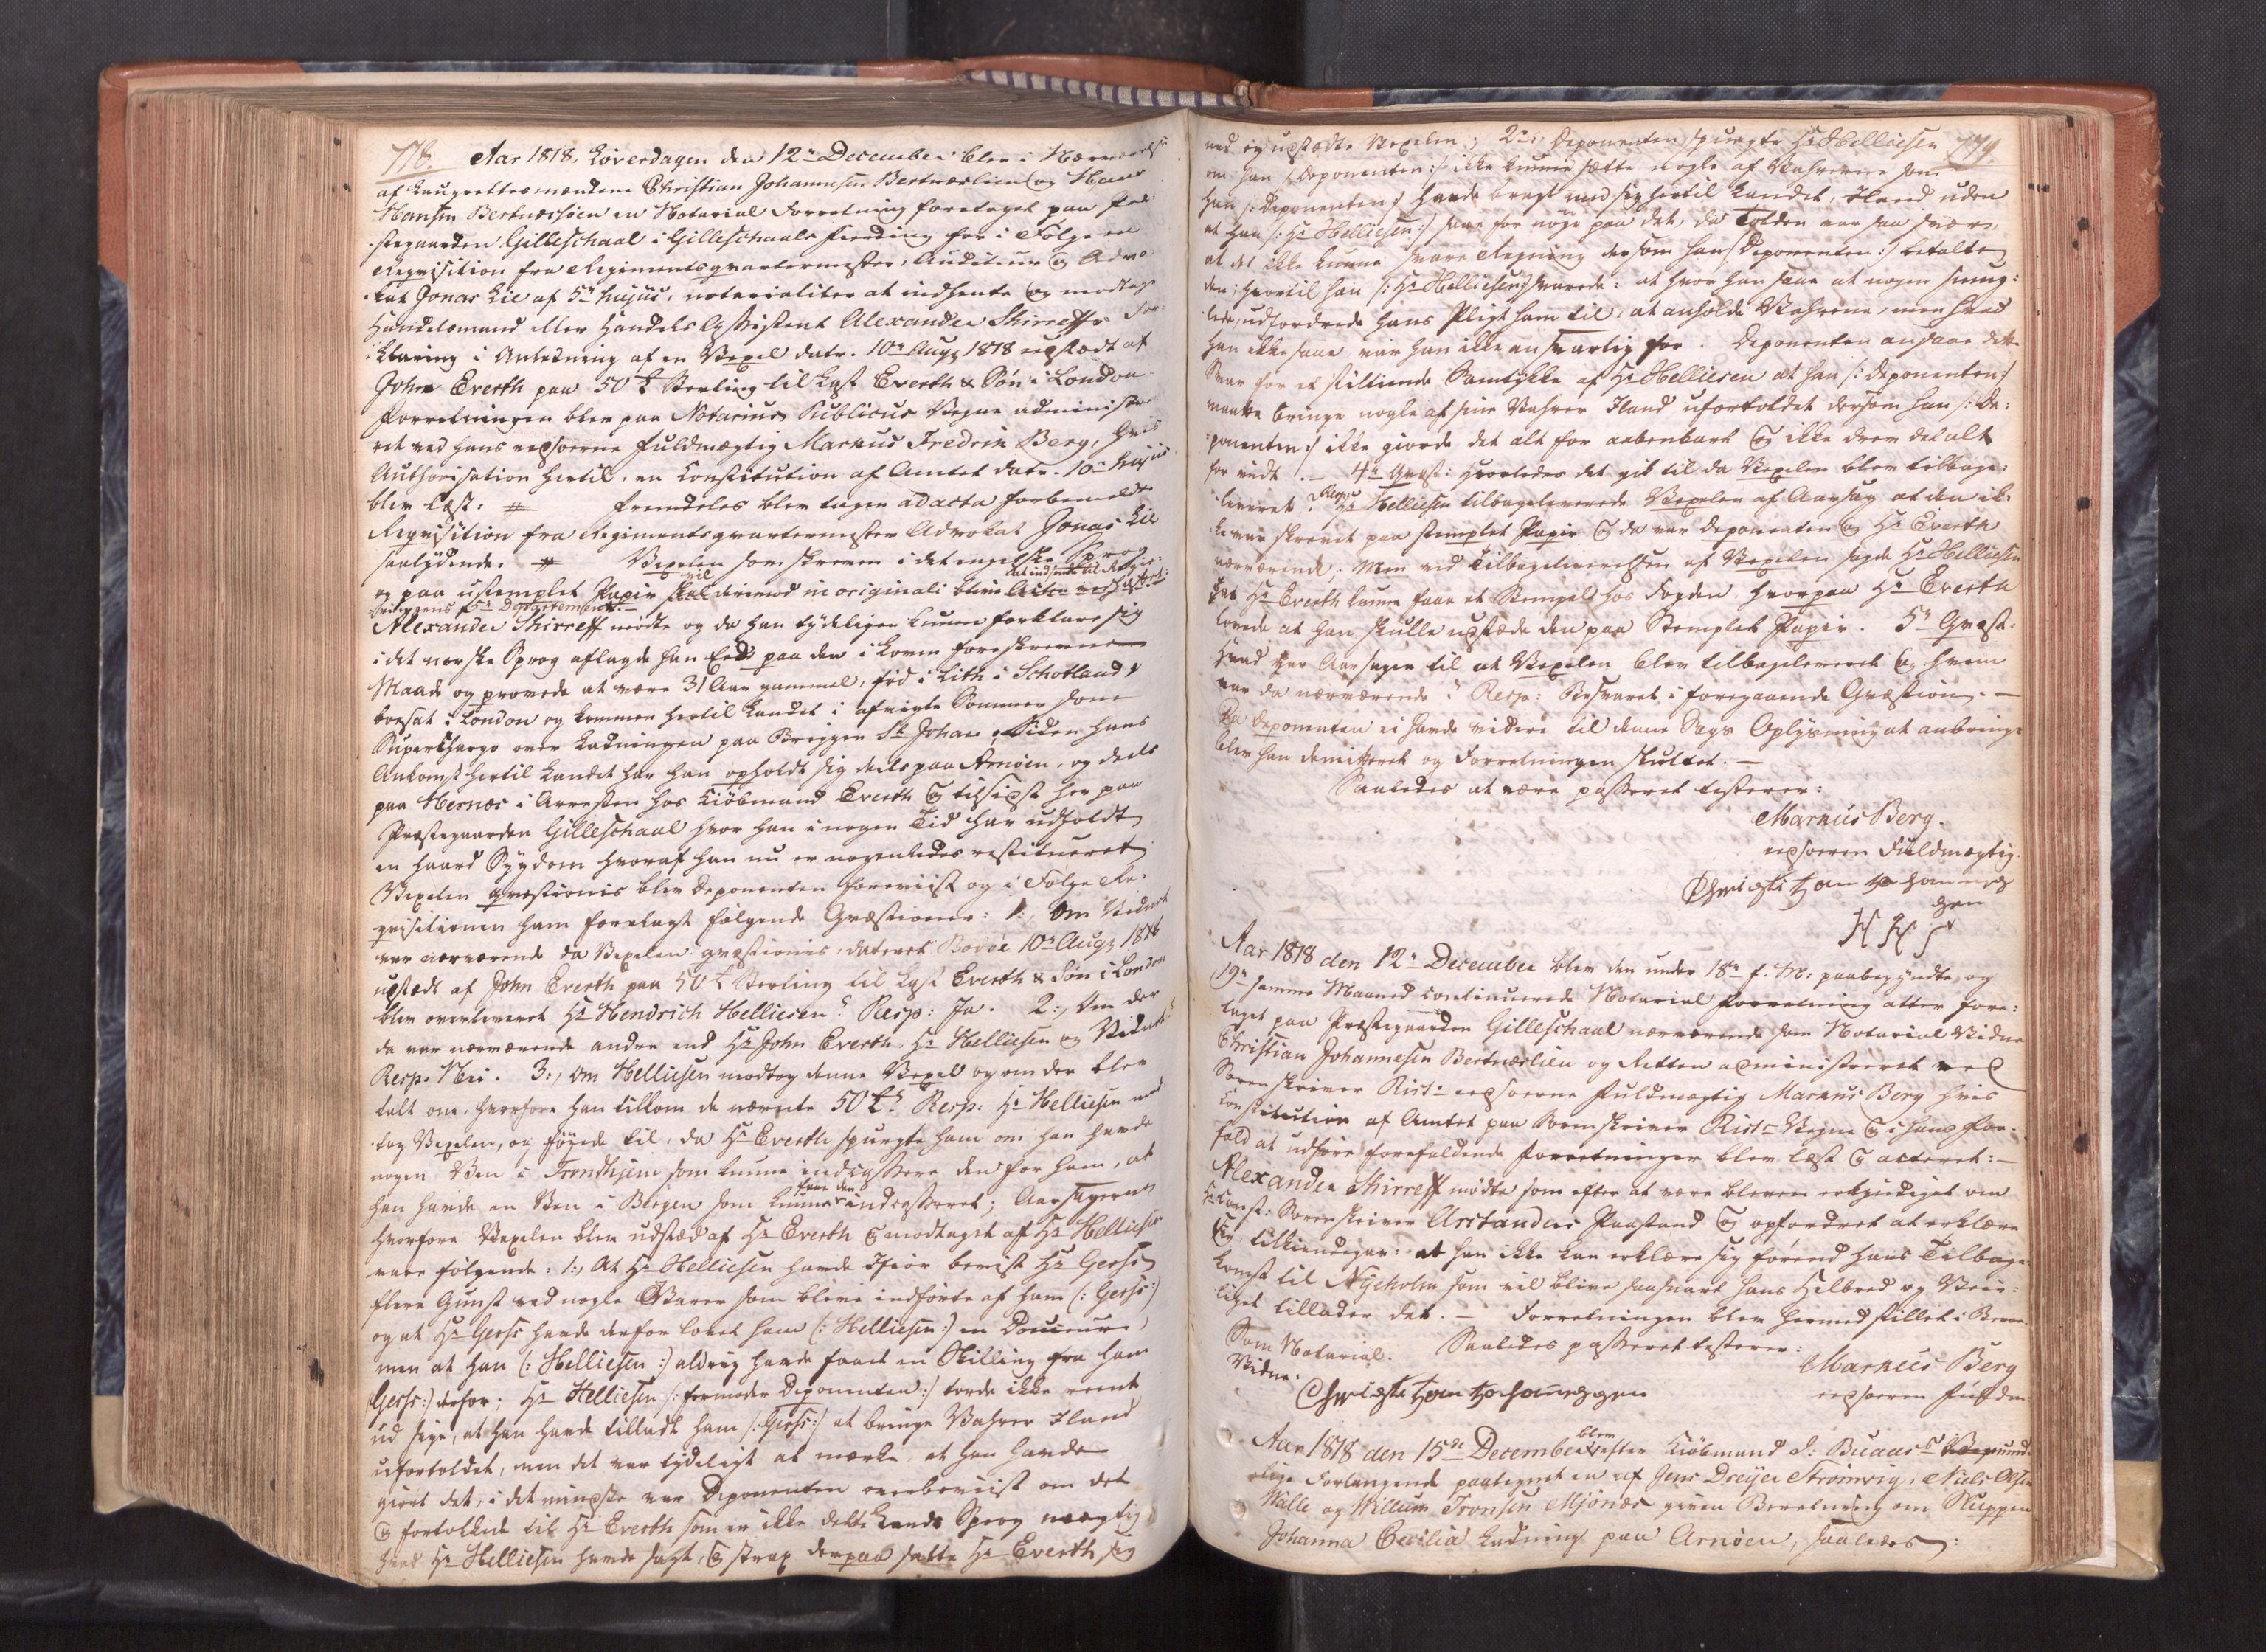 778.
Aar 1818, Løverdagen den 12te December blev i Nærværelse
af Laugrettesmændene Christian Johannesen Bertnæslien og Hans
Hansen Bertnæsøen en Notarial Forretning foretaget paa Præ-
stegaarden Gilleschaal i Gilleschaals Fierding for i Følge en
Reqvisition fra Regimentsqvartermester, Auditeur og Advo-
kat Jonas Lie af 5te hujus, notarialiter at indhente og modtage
Handelsmand eller Handels Assistent Alexander Shirreffs For-
klaring i Anledning af en Vexel dat. 10de Aug 1818 udstædt af
John Everth paa 50 £ Sterling til Last Everth & Søn i London.
Forretningen blev paa Notarius Publicus Vegne administre-
ret ved hans edsorne Fuldmægtig Markus Fredrik Berg, hvis
Authorisation hertil, en Constitution af Amtet dat. 10de hujus
blev læst: # Fremdeles blev tagen ad acta forbemeldte
Reqvisition fra Regimentsqvartermester Advokat Jonas Lie
saalydende. # Vexelen som skreven i det engelske Sprog
og paa ustemplet Papir vil derimod in originali blive at indsende til Regje-
ringens 5te Departement.
Alexander Shirreff mødte og da han tydeligen kunne forklare sig
i det norske Sprog aflagde han Eed paa den i Loven foreskrevne
Maade og provede at være 31 Aar gammel, fød i Lith i Schotland,
boesat i London og kommen hertil Landet i afvigte Sommer som
Superchargo over Ladningen paa Briggen St Johan; Siden hans
Ankomst hertil Landet har han opholdt sig deels paa Arnøen, og deels
paa Hernæs i Arresten hos Kiøbmand Everth og tilsidst her paa
Præstegaarden Gilleschaal hvor han i nogen Tid har udholdt
en haard Sygdom hvoraf han nu er nogenledes restitueret.
Vexelen qvæstionis blev Deponenten foreviist og i Følge Re-
qvisitionen ham forelagt følgende Qvæstioner: 1:, Om Vidnet
var nærværende da Vexelen qvæstionis, dateret Bodøe 10de Aug 1816
udstædt af John Everth paa 50 £ Sterling til Last Everth & Søn i London
blev overleveret Hr Hendrich Helliesen? Resp: Ja. 2:, Om der
da var nærværende andre end Hr John Everth, Hr Helliesen og Vidnet?
Resp. Nei. 3:, Om Helliesen modtog denne Vexel og om der blev
talt om, hvorfore han tilkom de nævnte 50 £? Resp: Hr Helliesen mod-
tog Vexelen, og føjede til, da Hr Everth spurgte ham om han havde
nogen Ven i Trondhjem som kunne indcassere den for ham, at
han havde en Ven i Bergen som kunne faae den indcasseret; Aarsagerne
hvorfore Vexelen blev udstæd af Hr Everth og modtaget af Hr Helliesen
vare følgende: 1:, At Hr Helliesen havde Ifior beviist Hr Gerss
flere Gunst ved nogle Varer som bleve indførte af ham (: Gerss :)
og at Hr Gerss havde derfor lovet ham (: Helliesen :) en Douceur,
men at han (: Helliesen :) aldrig havde faaet en Skilling fra ham
Gerss :) derfor; Hr Helliesen (: formoder Deponenten :) torde ikke reent
ud sige, at han havde tilladt ham (: Gerss :) at bringe Vahrer Iland
ufortoldet, men det var tydeligt at mærke, at han havde
giort det, i det mindste var Deponenten overbeviist om det
og fortolkede til Hr Everth som er ikke dette Lands Sprog mægtig
hvad Hr Helliesen havde sagt, og strax derpaa satte Hr Everth sig
779
ned og udstædte Vexelen; 2de, Deponenten spurgte Hr Helliesen
om han (: Deponenten :) ikke kunne sætte nogle af Vahrerne som
han (: Deponenten :) havde bragt med sig hertil Landet, Iland uden
at han (: Hr Helliesen :) saae for nøye paa det, da Tolden var saa svær,
at det ikke kunne svare Regning dersom han (: Deponenten :) betalte
den; hvortil han (: Hr Helliesen :) svarede: at hvor han saae at nogen smug-
lede, udfordrede hans Pligt ham til, at anholde Vahrene, men hvad
han ikke saae var han ikke ansvarlig for. Deponenten ansaae dette
Svar for et stiltiende Samtykke af Hr Helliesen at han (: Deponenten :)
maatte bringe nogle af sine Vahrer Iland ufortoldet dersom han (: De-
ponenten :) ikke giorde det alt for aabenbart og ikke drev det alt
for vidt. — 4de Qvæst: Hvorledes det gik til da Vexelen blev tilbage-
leveret? Resp: Hr Helliesen tilbageleverede Vexelen af Aarsag at den ik-
ke var skrevet paa stemplet Papir og da var Deponenten og Hr Everth
nærværende; Men ved Tilbageleverelsen af Vexelen sagde Hr Helliesen
at Hr Everth kunne faae et Stempel hos Fogden hvorpaa Hr Everth
lovede at han skulle udstæde den paa Stemplet Papir. 5te Qvæst:
Hvad var Aarsagen til at Vexelen blev tilbageleveret og hvem
var da nærværende? Resp: Besvaret i foregaaende Qvæstion. —
Da Deponenten ei havde videre til denne Sags Oplysning at anbringe
blev han demitteret og Forretningen sluttet. —
Saaledes at være passeret testerer:
Markus Berg.
edsoren Fuldmægtig.
Christian Johannes
sen
H H S
Aar 1818 den 12te December blev den under 18de f. M: paabegyndte, og
19de samme Maaned continuerede Notarial Forretning atter fore-
taget paa Præstegaarden Gilleschaal nærværende som Notarial Vidne
Christian Johannesen Bertnæslien og Retten administreret ved
Sorenskriver Rists edsorne Fuldmægtig Markus Berg hvis
Constitution af Amtet paa Sorenskriver Rists Vegne og i hans For-
fald at udføre forefaldende Forretninger blev læst og acteret: —
Alexander Shirreff mødte som efter at være bleven ertyndiget om
Hr Const: Sorenskriver Urstanders Paastand og opfordret at erklære
sig tilkiendegav: at han ikke kan erklære sig førend hans Tilbage-
komst til Nyeholm som vil blive saasnart hans Helbred og Veir-
liget tillader det. — Forretningen blev hermed stillet i Beroe.
Som Notarial. Saaledes passeret testerer:
Vidne: Markus Berg
Christian Johannessen edsoren Fuldm.
Aar 1818 den 15de December blev efter Kiøbmand J: Buaas
Forlangende paategnet en af Jens Dreyer Strømvig, Niels Olsen
Walle og Willum Tronsen Mjønæs given Beretning om Skuppen
Johanna Cecilia Ladning paa Arnøen, saaledes: